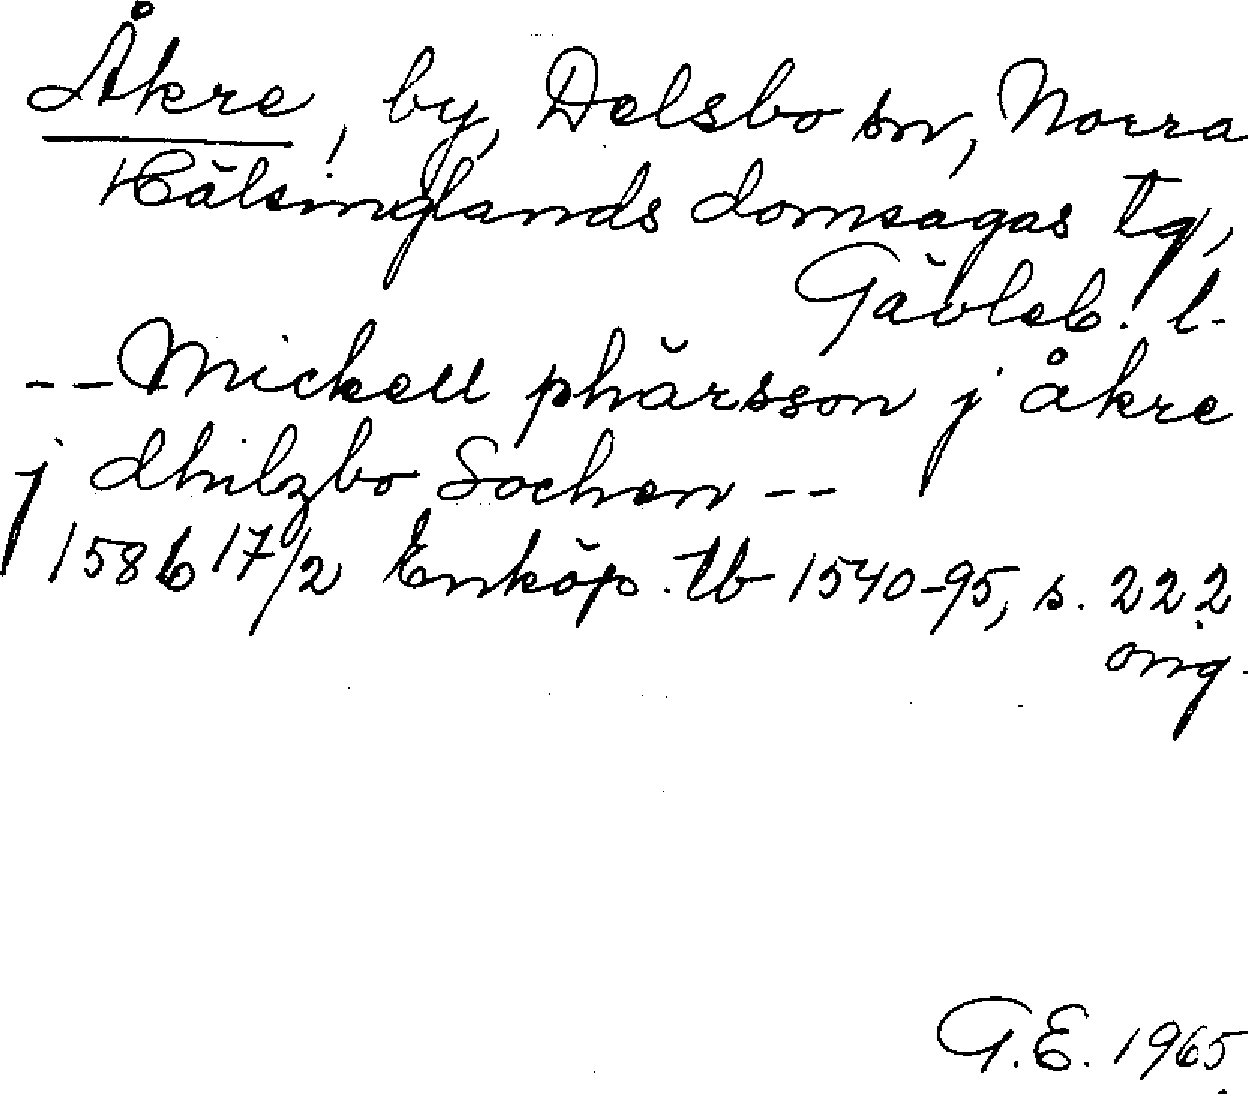 Åkre, by, Delsbo sn, Norra
Hälsinglands domsagas tg,
Gävleb. l.
-- Mickell phärsson j åkre
j dhilzbo Sochen --
1586 17/2 Enköp. tb 1540-95, s. 222
orig.
G.E. 1965